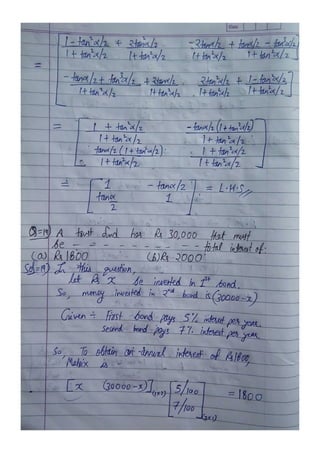 Date
= [ 1-tan²α/2 / 1+tan²α/2 + 2tan²α/2 / 1+tan²α/2    -2tanα/2 / 1+tan²α/2 + tanα/2 - tan³α/2 / 1+tan²α/2
-tanα/2 + tan³α/2 / 1+tan²α/2 + 2tanα/2 / 1+tan²α/2    2tan²α/2 / 1+tan²α/2 + 1-tan²α/2 / 1+tan²α/2 ]
= [ 1 + tan²α/2 / 1+tan²α/2    -tanα/2 (1+tan²α/2) / 1+tan²α/2
tanα/2 (1+tan²α/2) / 1+tan²α/2    1 + tan²α/2 / 1+tan²α/2 ]
= [ 1    -tanα/2
tanα/2    1 ] = L.H.S
Q=19) A trust fund has Rs 30,000 that must
be - = - - - - - - - - total interest of:
(a) Rs 1800    (b) Rs 2000
Sol=19) In this question,
let Rs x be invested in 1st bond.
So, money invested in 2nd bond is (30000-x)
Given ÷ First bond pays 5% interest per year.
second bond pays 7% interest per year
So, To obtain an annual interest of Rs1800,
Matrix is -
[x    (30000-x)](1x2) [5/100
7/100](2x1) = 1800